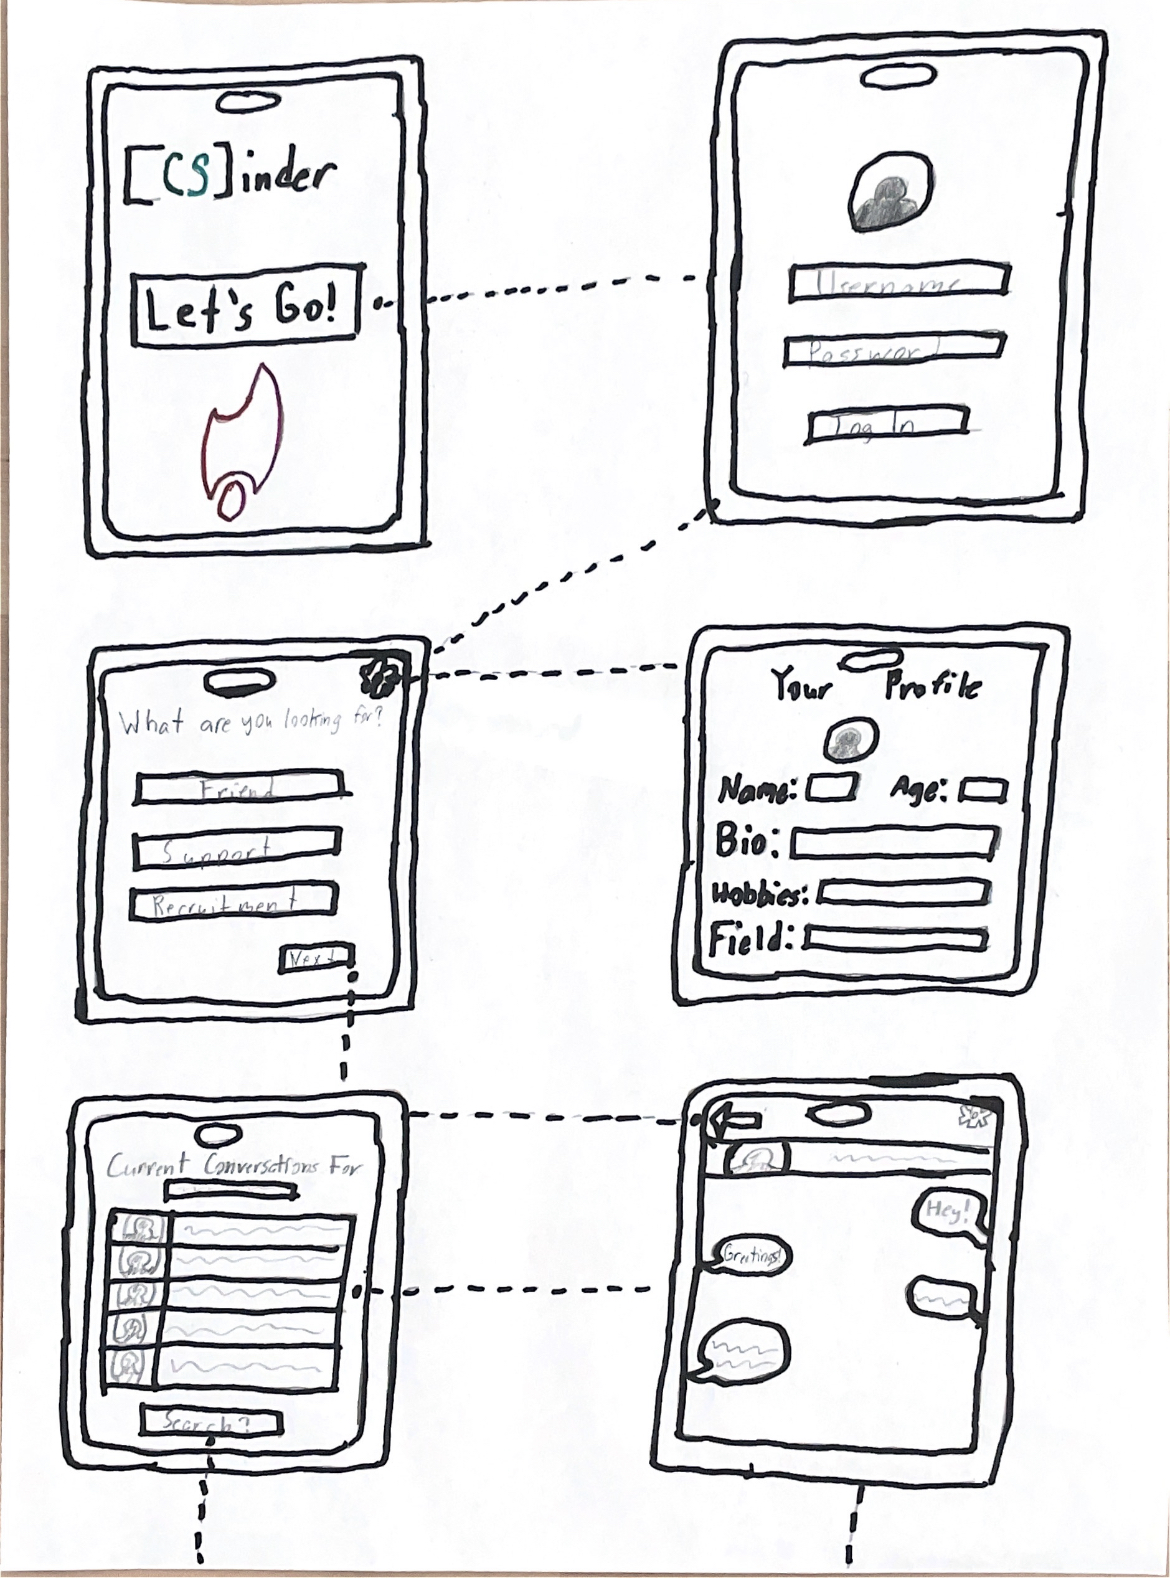 [CS]inder
Let's Go!
Username
Password
Log In
What are you looking for?
Friend
Support
Recruitment
Next
Your Profile
Name: Age:
Bio:
Hobbies:
Field:
Current Conversations For
Search?
Hey!
Greetings!